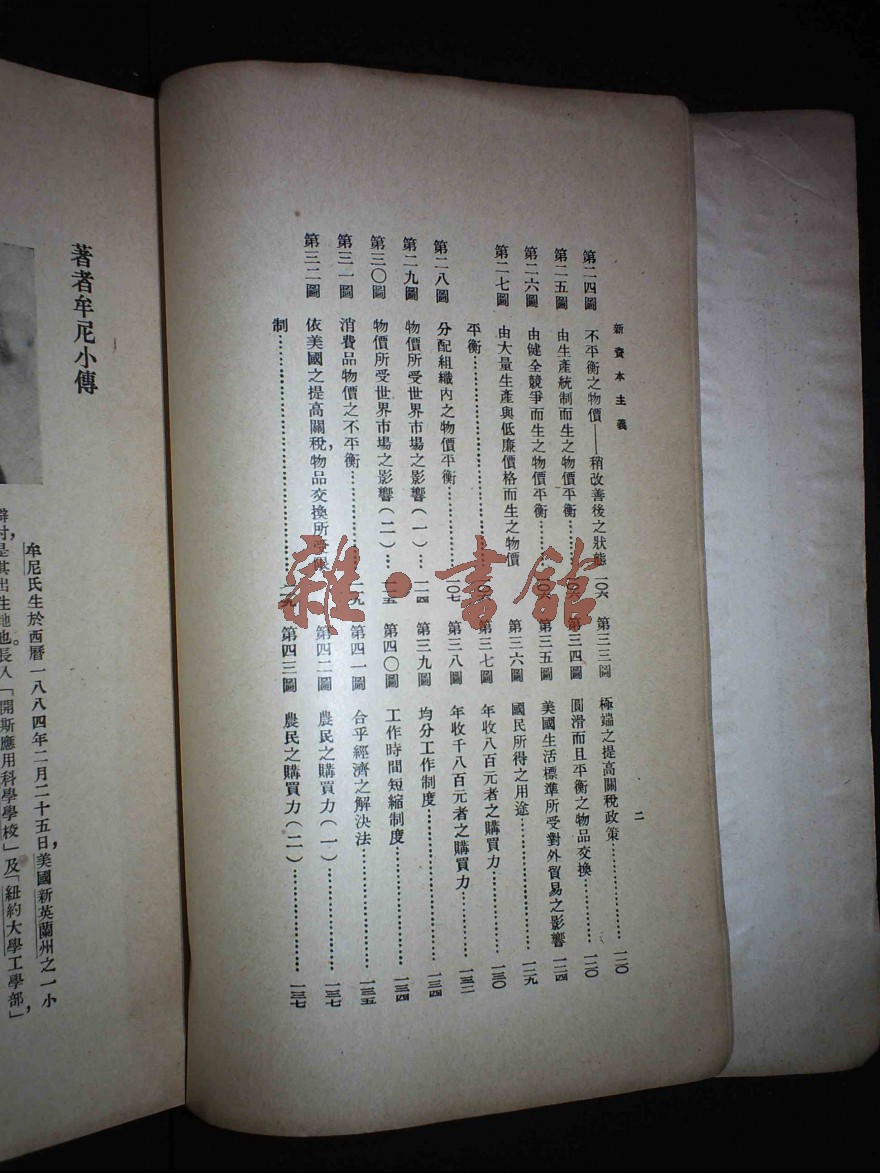 新資本主義
二
第二四圖 不平衡之物價——稍改善後之狀態 一〇六
第二五圖 由生產統制而生之物價平衡……
第二六圖 由健全競爭而生之物價平衡……
第二七圖 由大量生產與低廉價格而生之物價
平衡……
第二八圖 分配組織內之物價平衡……一〇七
第二九圖 物價所受世界市場之影響(一)…一一四
第三〇圖 物價所受世界市場之影響(二)…一一五
第三一圖 消費品物價之不平衡……一一九
第三二圖 依美國之提高關稅,物品交換所受限
制……一一九
第三三圖 極端之提高關稅政策……一二〇
第三四圖 圓滑而且平衡之物品交換……一二〇
第三五圖 美國生活標準所受對外貿易之影響 一二四
第三六圖 國民所得之用途……一二九
第三七圖 年收八百元者之購買力……一三〇
第三八圖 年收千八百元者之購買力……一三二
第三九圖 均分工作制度……一三四
第四〇圖 工作時間短縮制度……一三四
第四一圖 合乎經濟之解決法……一三五
第四二圖 農民之購買力(一)……一三七
第四三圖 農民之購買力(二)……一三七
著者牟尼小傳
牟尼氏生於西曆一八八四年二月二十五日,美國新英蘭州之一小
村,是其出生地也。長入「開斯應用科學學校」及「紐約大學工學部」,
雜·書館